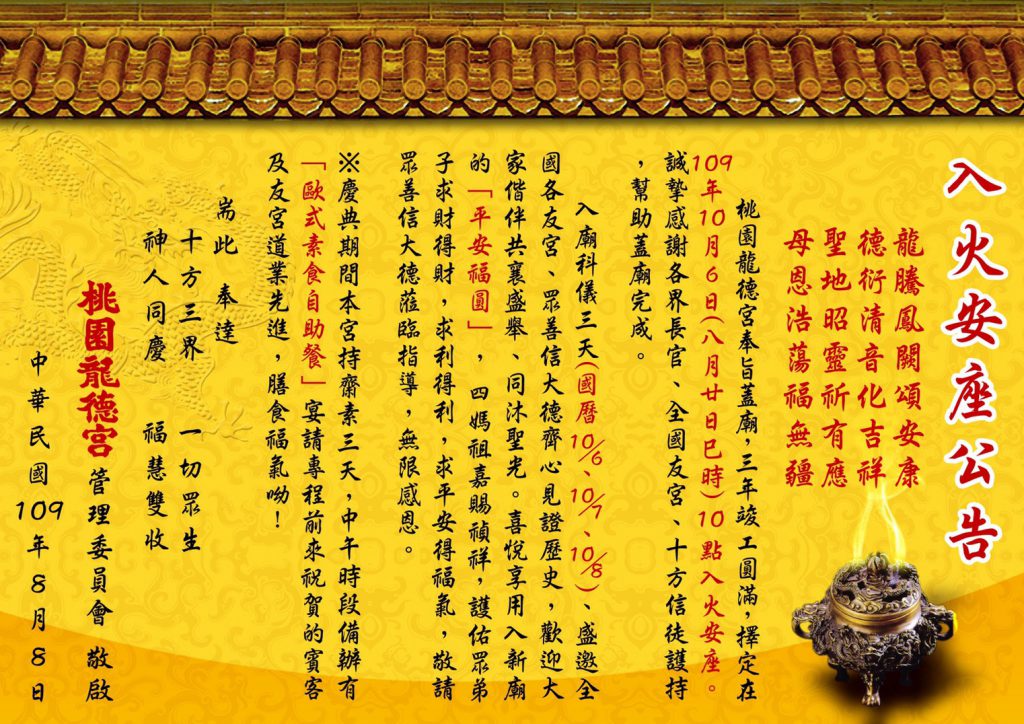 入火安座公告
龍騰鳳闕頌安康
德衍清音化吉祥
聖地昭靈祈有應
母恩浩蕩福無疆
桃園龍德宮奉旨蓋廟，三年竣工圓滿，擇定在
109年10月6日(八月廿日巳時)10點入火安座。
誠摯感謝各界長官、全國友宮、十方信徒護持
，幫助蓋廟完成。
入廟科儀三天(國曆10/6、10/7、10/8)、盛邀全
國各友宮、眾善信大德齊心見證歷史，歡迎大
家偕伴共襄盛舉、同沐聖光。喜悅享用入新廟
的「平安福圓」，四媽祖嘉賜禎祥，護佑眾弟
子求財得財，求利得利，求平安得福氣，敬請
眾善信大德蒞臨指導，無限感恩。
※慶典期間本宮持齋素三天，中午時段備辦有
「歐式素食自助餐」宴請專程前來祝賀的賓客
及友宮道業先進，膳食福氣呦！
耑此 奉達
十方三界 一切眾生
神人同慶 福慧雙收
桃園龍德宮 管理委員會 敬啟
中華民國109年8月8日